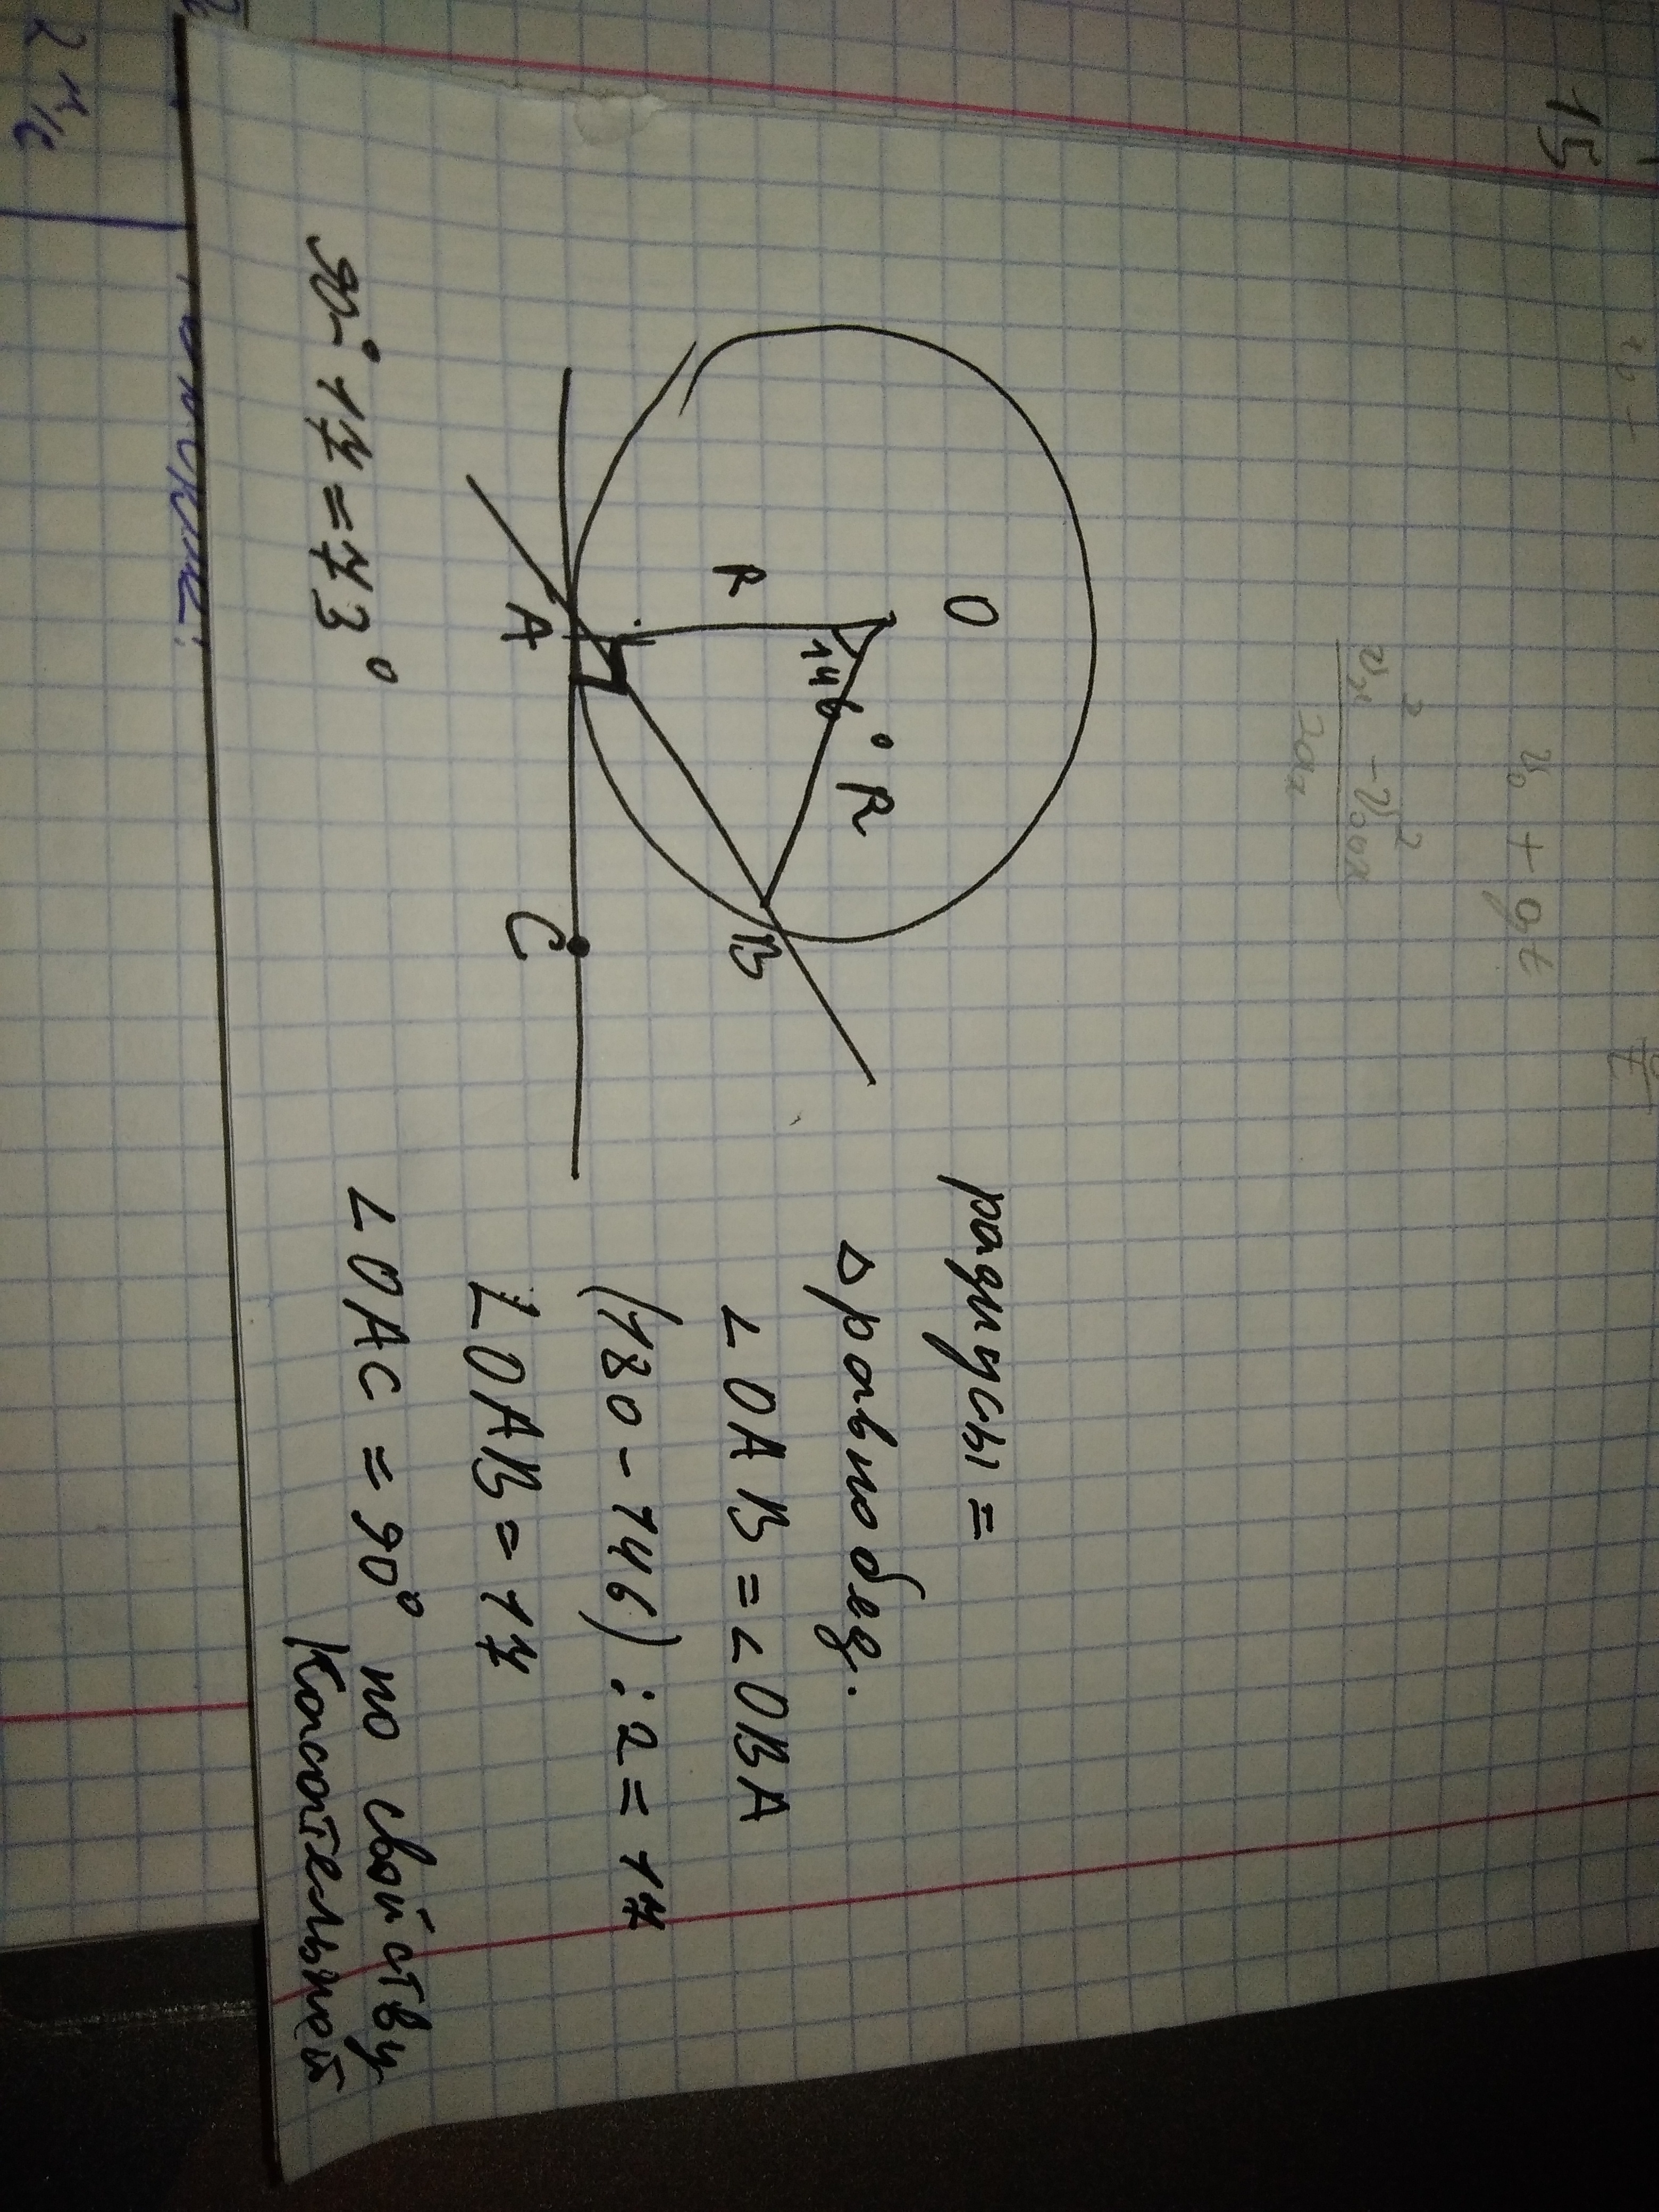 15
v₀ + gt
vₓ² - v₀ₓ²
2aₓ
O
146°
R
R
B
A
C
радиусы =
△ равнобед.
∠OAB = ∠OBA
(180 - 146) : 2 = 17
∠OAB = 17
∠OAC = 90° по свойству
касательной
90° - 17 = 73°
2 м/с